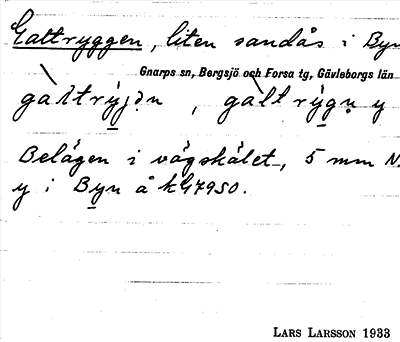 Galtryggen, liten sandås i Byn
Gnarps sn, Bergsjö och Forsa tg, Gävleborgs län
galtry̱jən, galtry̱gn̥ y
Belägen i vägskälet, 5 mm N.
y i By̱n å kbl 47950.
LARS LARSSON 1933